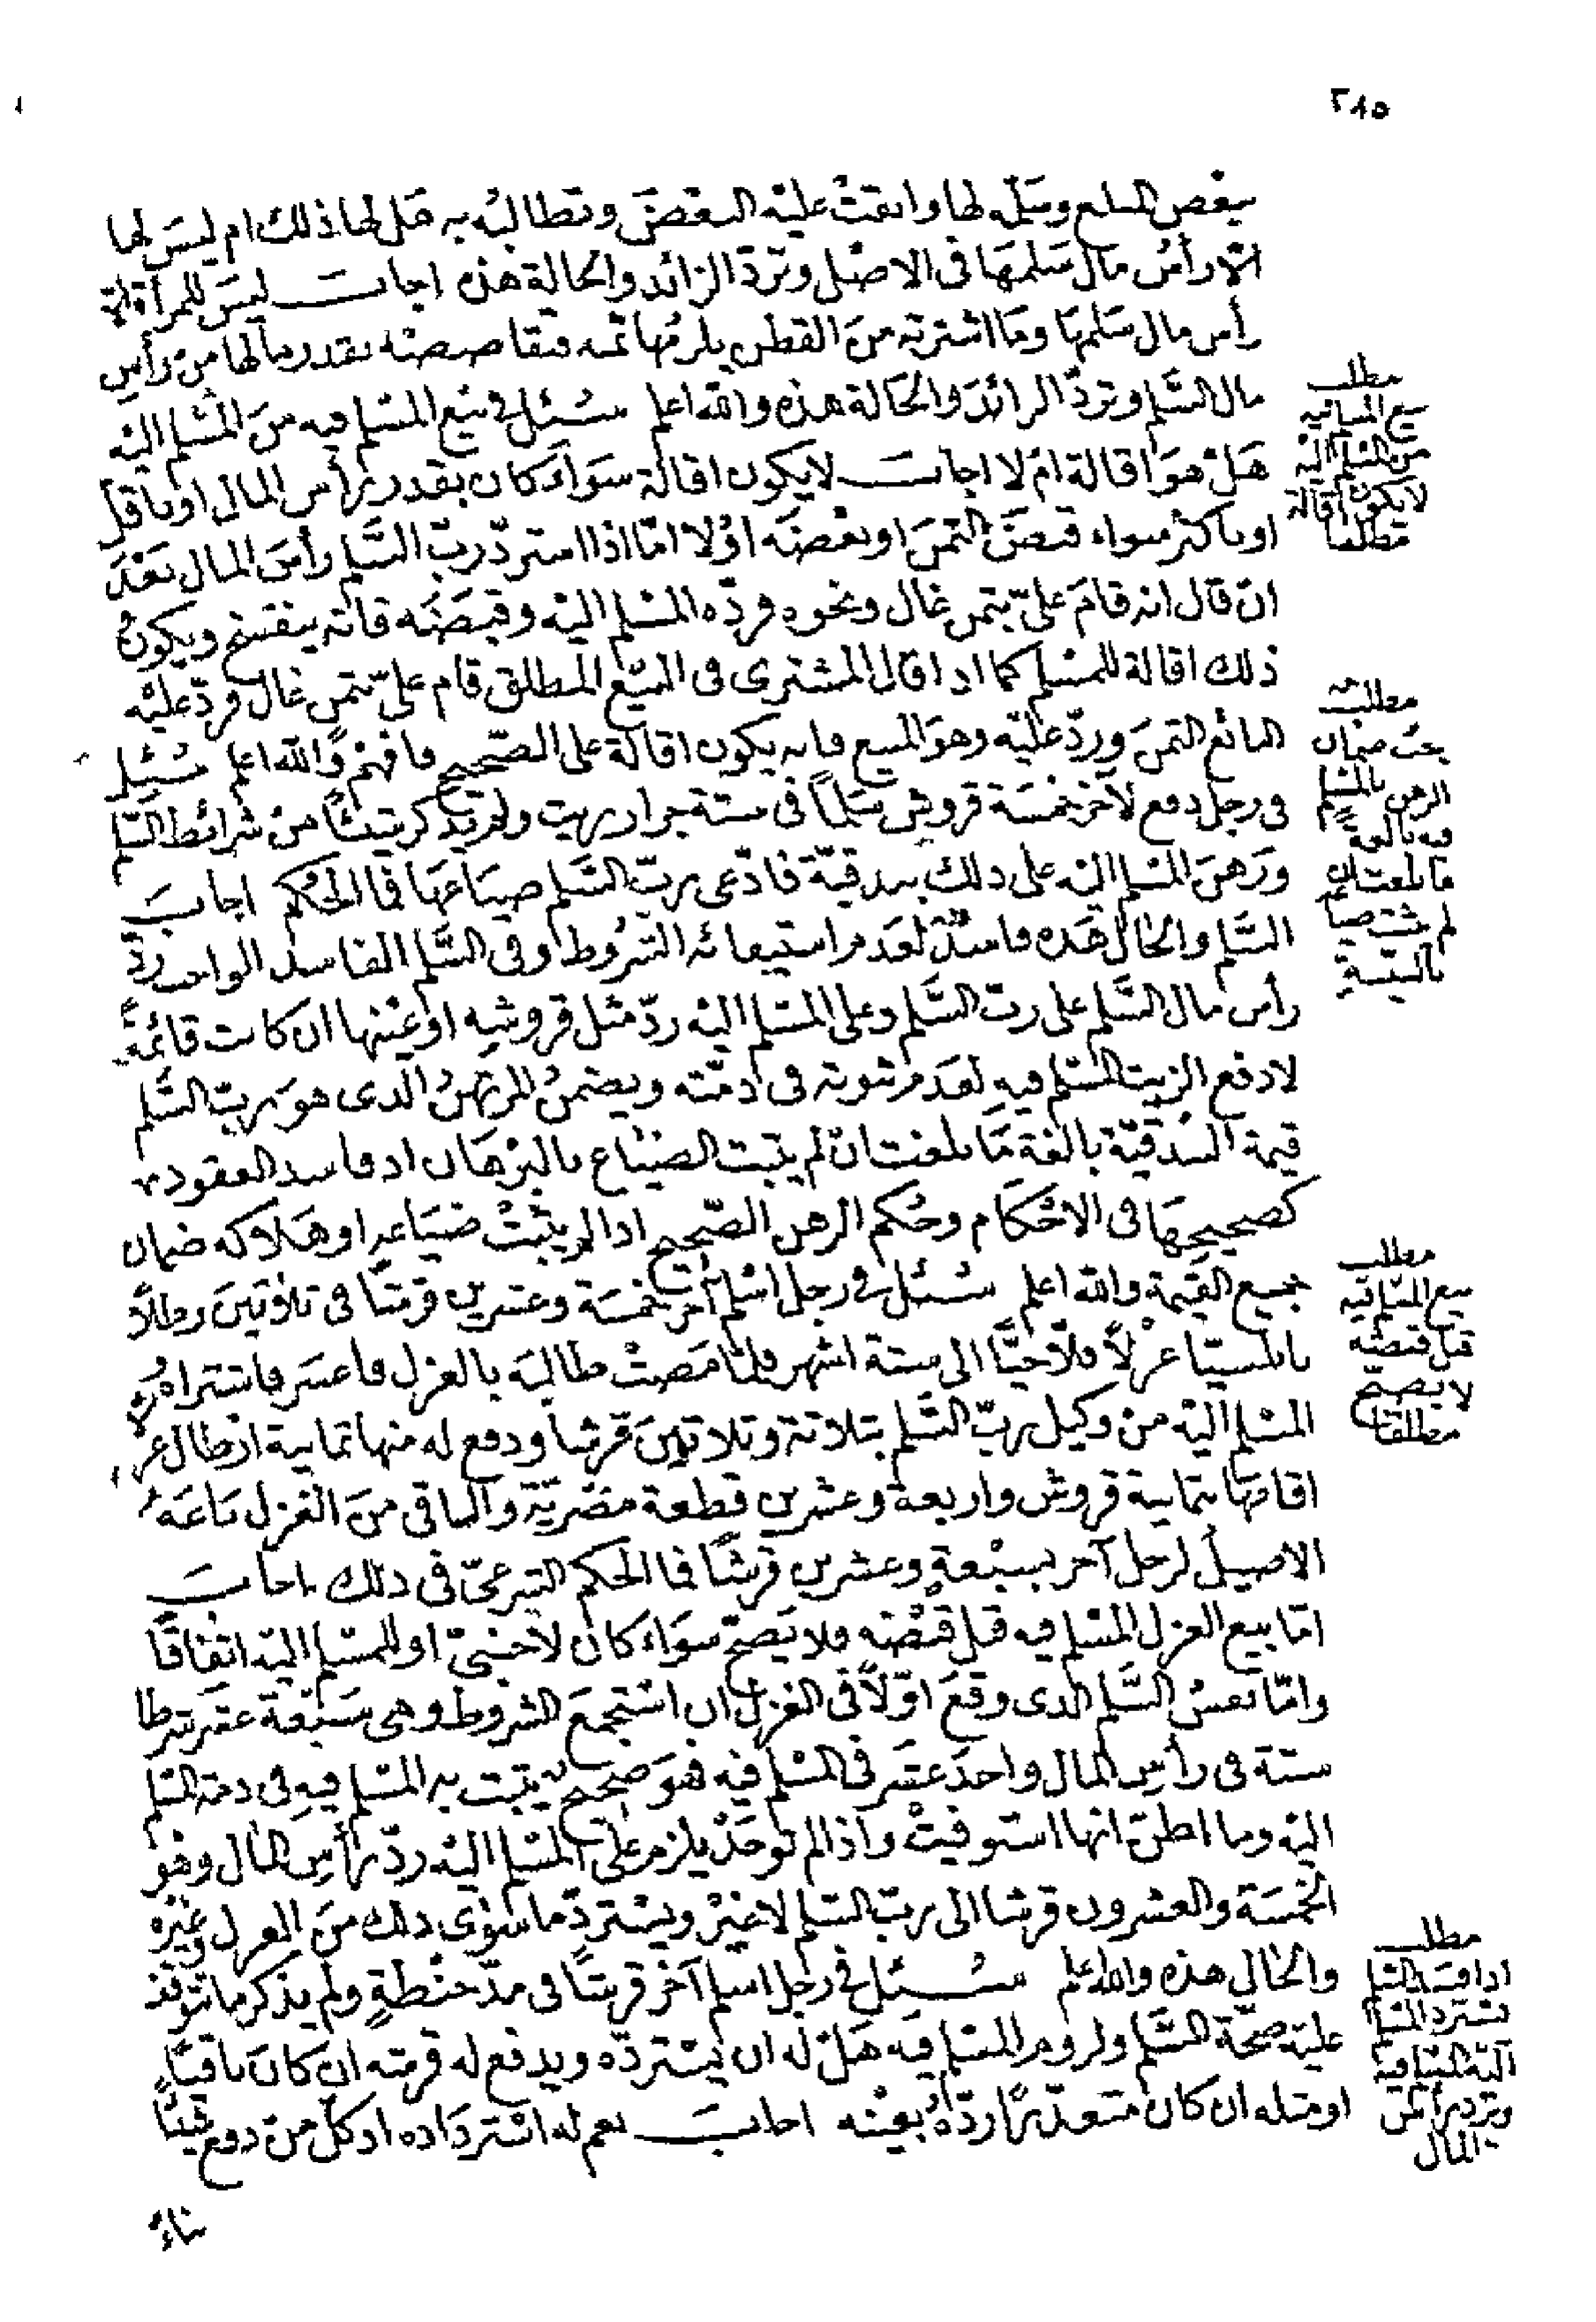 ٢٨٥
ببعض المبلغ وسلمه لها وابقت عليه البعض وتطالبه به هل لها ذلك ام ليس لها
الا رأس مال سلمها في الاصل وترد الزائد والحالة هذه اجاب ليس للمرأة الا
رأس مال سلمها وما اشترته من القطن يلزمها ثمنه فتقاصصه بقدر مالها من رأس
مال السلم وترد الزائد والحالة هذه والله اعلم سئل في بيع المسلم فيه من المسلم اليه
هل هو اقالة ام لا اجاب لا يكون اقالة سواء كان بقدر رأس المال او باقل
او باكثر سواء قبض الثمن او بعضه اولا اما اذا استرد رب السلم رأس المال بعد
ان قال انه قام علي بثمن غال ونحوه فرده المسلم اليه وقبضه فانه ينفسخ ويكون
ذلك اقالة للمسلم كما اذا قال المشتري في البيع المطلق قام علي بثمن غال فرد عليه
البائع الثمن ورد عليه وهو المبيع فانه يكون اقالة على الصحيح فافهم والله اعلم سئل
في رجل دفع لآخر خمسة قروش سلما في ستة جرار زيت ولم يذكر شيئا من شرائط السلم
ورهن المسلم اليه على ذلك بندقية فادعى رب السلم ضياعها فما الحكم اجاب
السلم والحال هذه فاسد لعدم استيفائه الشروط وفي السلم الفاسد الواجب رد
رأس مال السلم على رب السلم وعلى المسلم اليه رد مثل قروشه او عينها ان كانت قائمة
لا دفع الزيت المسلم فيه لعدم ثبوته في ذمته ويضمن المرتهن الذي هو رب السلم
قيمة البندقية بالغة ما بلغت ان لم يثبت الضياع بالبرهان اذ فاسد العقود
كصحيحها في الاحكام وحكم الرهن الصحيح اذا لم يثبت ضياعه او هلاكه ضمان
جميع القيمة والله اعلم سئل في رجل اسلم آخر خمسة وعشرين قرشا في ثلاثين رطلا
نابلسيا غزلا فلاحيا الى ستة اشهر فلما مضت طالبه بالغزل فاعسر فاشتراه
المسلم اليه من وكيل رب السلم بثلاثة وثلاثين قرشا ودفع له منها ثمانية ارطال غزل
اقامها بثمانية قروش واربعة وعشرين قطعة مصرية والباقي من الغزل باعه
الاصيل لرجل آخر بسبعة وعشرين قرشا فما الحكم الشرعي في ذلك اجاب
اما بيع الغزل المسلم فيه قبل قبضه فلا يصح سواء كان لاجنبي او للمسلم اليه اتفاقا
واما نفس السلم الذي وقع اولا في الغزل ان استجمع الشروط وهي سبعة عشر شرطا
ستة في رأس المال واحد عشر في المسلم فيه فهو صحيح يثبت به المسلم فيه في ذمة المسلم
اليه وما اظن انها استوفيت واذا لم توجد يلزم على المسلم اليه رد رأس المال وهو
الخمسة والعشرون قرشا الى رب السلم لا غير ويسترد ما سوى ذلك من الغزل وغيره
والحال هذه والله اعلم سئل في رجل اسلم آخر قرشا في مد حنطة ولم يذكر ما تتوقف
عليه صحة السلم ولزوم المسلم فيه هل له ان يسترده ويدفع له قرشه ان كان باقيا
او مثله ان كان متعذرا رده بعينه اجاب نعم له استرداده اذ كل من دفع شيئا
بناء
مطلب
بيع المسلم فيه
من المسلم اليه
لا يكون اقالة
مطلقا
مطلب
بحث ضمان
الرهن بالمسلم
فيه بالغة
ما بلغت ان
لم يثبت ضياعه
بالبينة
مطلب
بيع المسلم فيه
قبل قبضه
لا يصح
مطلقا
مطلب
اذا فسد السلم
يسترد المسلم
اليه المسلم فيه
ويرد رأس
المال